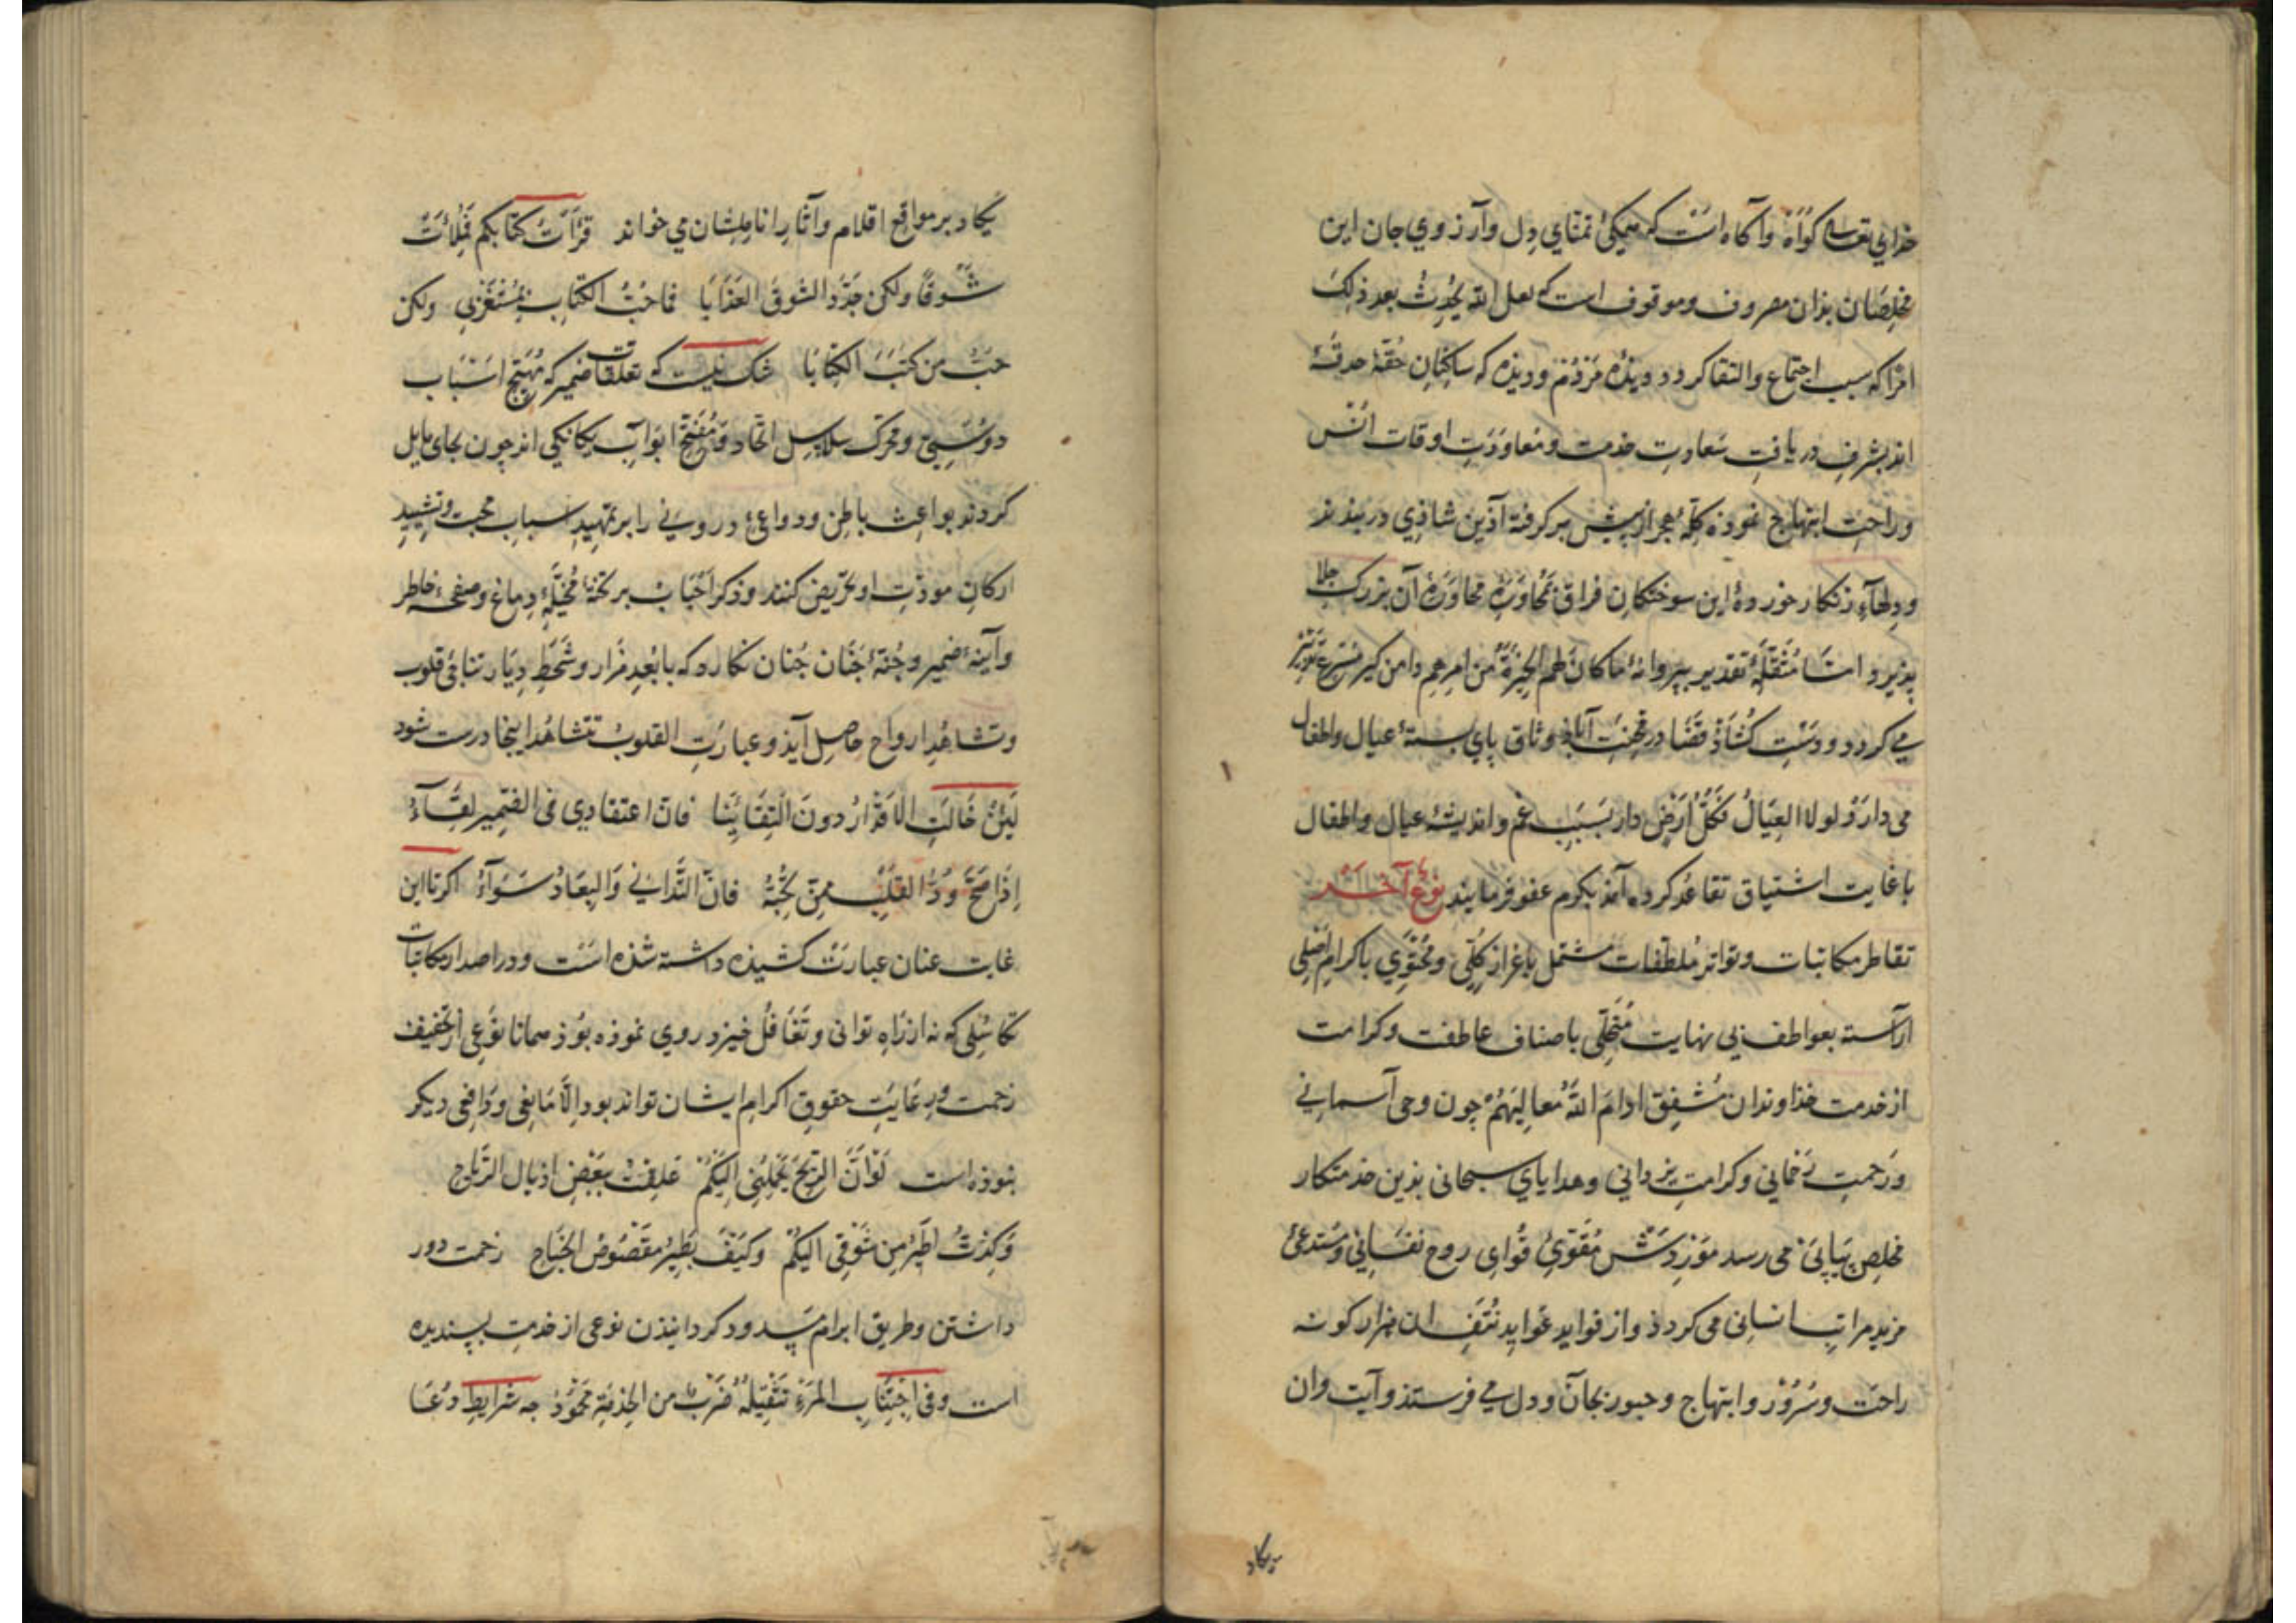 خدای تعالی كواه وآكاه است كه همكی تمنای دل وآرزوي جان این
مخلصان بذان مصروف وموقوف است كه لعل الله یحدث بعد ذلك
امرا كه سبب اجتماع والتقا كردد ودیذه مردم ودیذه كه ساكنان حقهٔ حدقه
اند بشرف دریافت سعادت خدمت ومعاودت اوقات انس
وراحت ابتهاج نموذه كلهٔ هجر از پیش بركرفته آذین شاذی دربندند
ودلهآء زنكار خورده این سوختكان فراق بمحاورهٔ آن بزرك جلا
پذیرد امّا تقدیر بپروانهٔ ماكان لهم الخیرة من امرهم دامن كیر
می كردد ودست كشاد قضا در وثاق پای بستهٔ عیال واطفال
می دارد ولولا العیال فكل ارض دار بسبب غم واندیشهٔ عیال واطفال
با غایت اشتیاق تقاعد كرده آمذ بكرم عفو فرمایند نوع آخر
تقاطر مكاتبات وتواتر ملطفات مشتمل باعزاز كلّی ومحتوی باكرام اصلی
آراسته بعواطف بی نهایت متحلّی باصناف عاطفت وكرامت
از خدمت خذاوندان مشفق ادام الله معالیهم چون وحی آسمانی
ورحمت رحمانی وكرامت یزدانی وهدایای سبحانی بذین خدمتكار
مخلص پیاپی می رسد موردش مقوی قوای روح نفسانی ومستدعی
مزید مراتب انسانی می كردذ واز فواید عواید ان هزار كونه
راحت وسرور وابتهاج وحبور بجان ودل می فرستذ وآیت وان
یكاد
یكاد بر مواقع اقلام وآثار اناملشان می خواند قرأت كتابكم فملائت
شوقا ولكن جدّد الشوق العذابا فما حبّ الكتاب ولكن
حبّ من كتب الكتابا شك نیست كه تعلقات ضمیر كه مهیّج اسباب
دوستی ومحرك سلاسل اتحاد ومفتح ابواب یكانكی اند چون بجای مایل
كردند بواعث باطن ودواعی درونی را بر تمهید اسباب محبت وتشیید
اركان مودّت او تحریض كنند وذكر احباب بر تختهٔ مخیّلهٔ دماغ وصفحهٔ خاطر
وآینهٔ ضمیر وجنّهٔ جنان چنان نكارد كه با بعد مزار وشحط دیار تناجی قلوب
وتشاهد ارواح حاصل آیذ وعبارت القلوب تتشاهد اینجا درست شود
لئن حالت الاقدار دون التقائنا فان اعتقادی فی الضمیر لقآء
اذا صحّ ودّ القلب ممّن تحبّه فانّ التّدانی والبعاد سوآء اكر تا این
غایت عنان عبارت كشیذه داشته شذه است ودر اصدار مكاتبات
تكاسلی كه نه از راه توانی وتغافل خیزد روی نموذه بوذ همانا نوعی از تخفیف
زحمت ورعایت حقوق اكرام ایشان تواند بود والّا مانعی ودافعی دیكر
نبوذه است لو انّ الریح تحملنی الیكم علقت ببعض اذیال الریاح
وكدت اطیر من شوقی الیكم وكیف یطیر مقصوص الجناح زحمت دور
داشتن وطریق ابرام مسدود كردانیذن نوعی از خدمت پسندیده
است وفی اجتناب المرء تثقیله ضرب من الخدمة محمود چه شرایط دعا